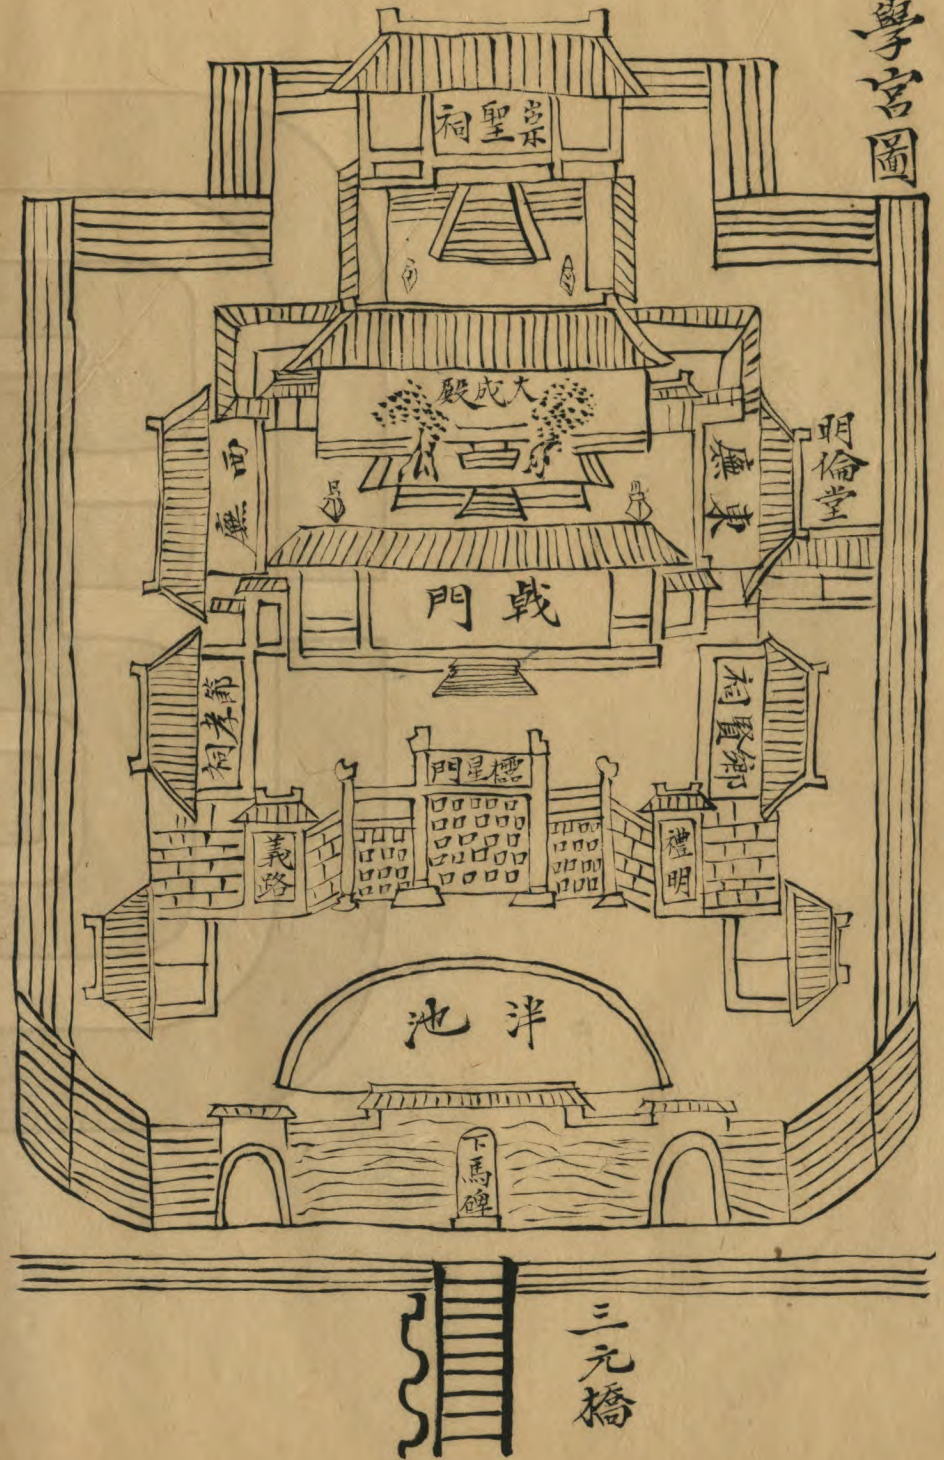 學宮圖
崇聖祠
大成殿
明倫堂
東廡
西廡
戟門
鄉賢祠
節孝祠
櫺星門
禮明
義路
泮池
下馬碑
三元橋